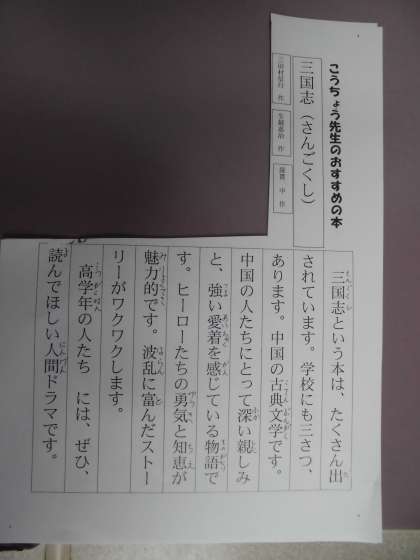 こうちょう先生のおすすめの本
三国志（さんごくし）
三田村信行　作
生越嘉治　作
羅貫　中　作
三国志という本は、たくさん出
されています。学校にも三さつ、
あります。中国の古典文学です。
中国の人たちにとって深い親しみ
と、強い愛着を感じている物語で
す。ヒーローたちの勇気と知恵が
魅力的です。波乱に富んだストー
リーがワクワクします。
高学年の人たち　には、ぜひ、
読んでほしい人間ドラマです。